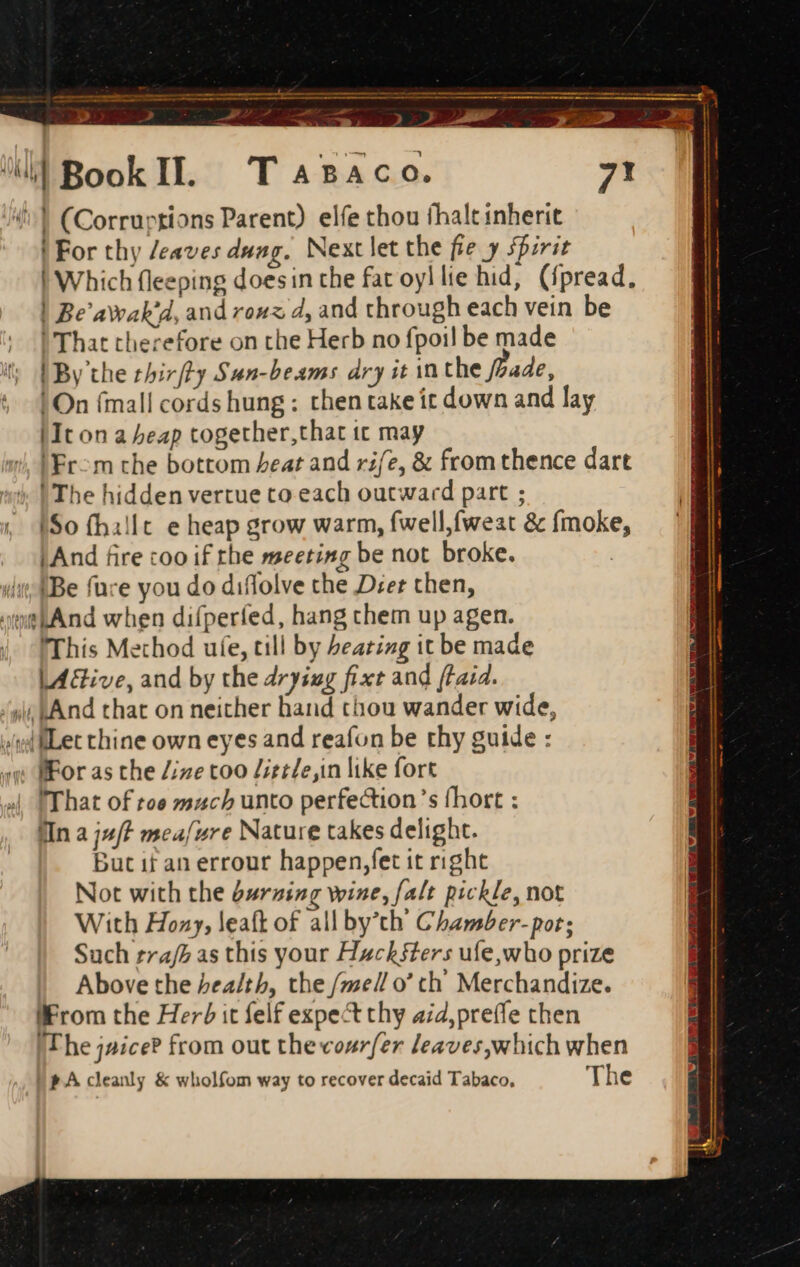 Book II. TABACO. 71
(Corruptions Parent) elſe thou ſhalt inherit
For thy leaves dung. Next let the fie y ſpirit
Which ſleeping does in the fat oyl lie hid, (ſpread,
Be'awak'd, and rouz d, and through each vein be
That therefore on the Herb no ſpoil be made
By'the thirſty Sun-beams dry it in the ſhade,
On ſmall cords hung: then take it down and lay
It on a heap together, that it may
From the bottom heat and riſe, & from thence dart
The hidden vertue to each outward part;
So ſhall t e heap grow warm, ſwell, ſweat & ſmoke,
And fire too if the meeting be not broke.
Be ſure you do diſſolve the Diet then,
And when diſperſed, hang them up agen.
This Method uſe, till by heating it be made
Active, and by the drying fixt and ſtaid.
And that on neither hand thou wander wide,
Let thine own eyes and reaſon be thy guide:
For as the line too little, in like ſort
That of too much unto perfection's ſhort:
In a juſt meaſure Nature takes delight.
But if an errour happen, ſet it right
Not with the burning wine, ſalt pickle, not
With Hony, leaſt of all by'th' Chamber-pot;
Such traſh as this your Huckſters uſe, who prize
Above the health, the ſmell o'th' Merchandize.
From the Herb it ſelf expect thy aid, preſſe then
The juice^p from out the courſer leaves, which when
p A cleanly & wholſom way to recover decaid Tabaco. The